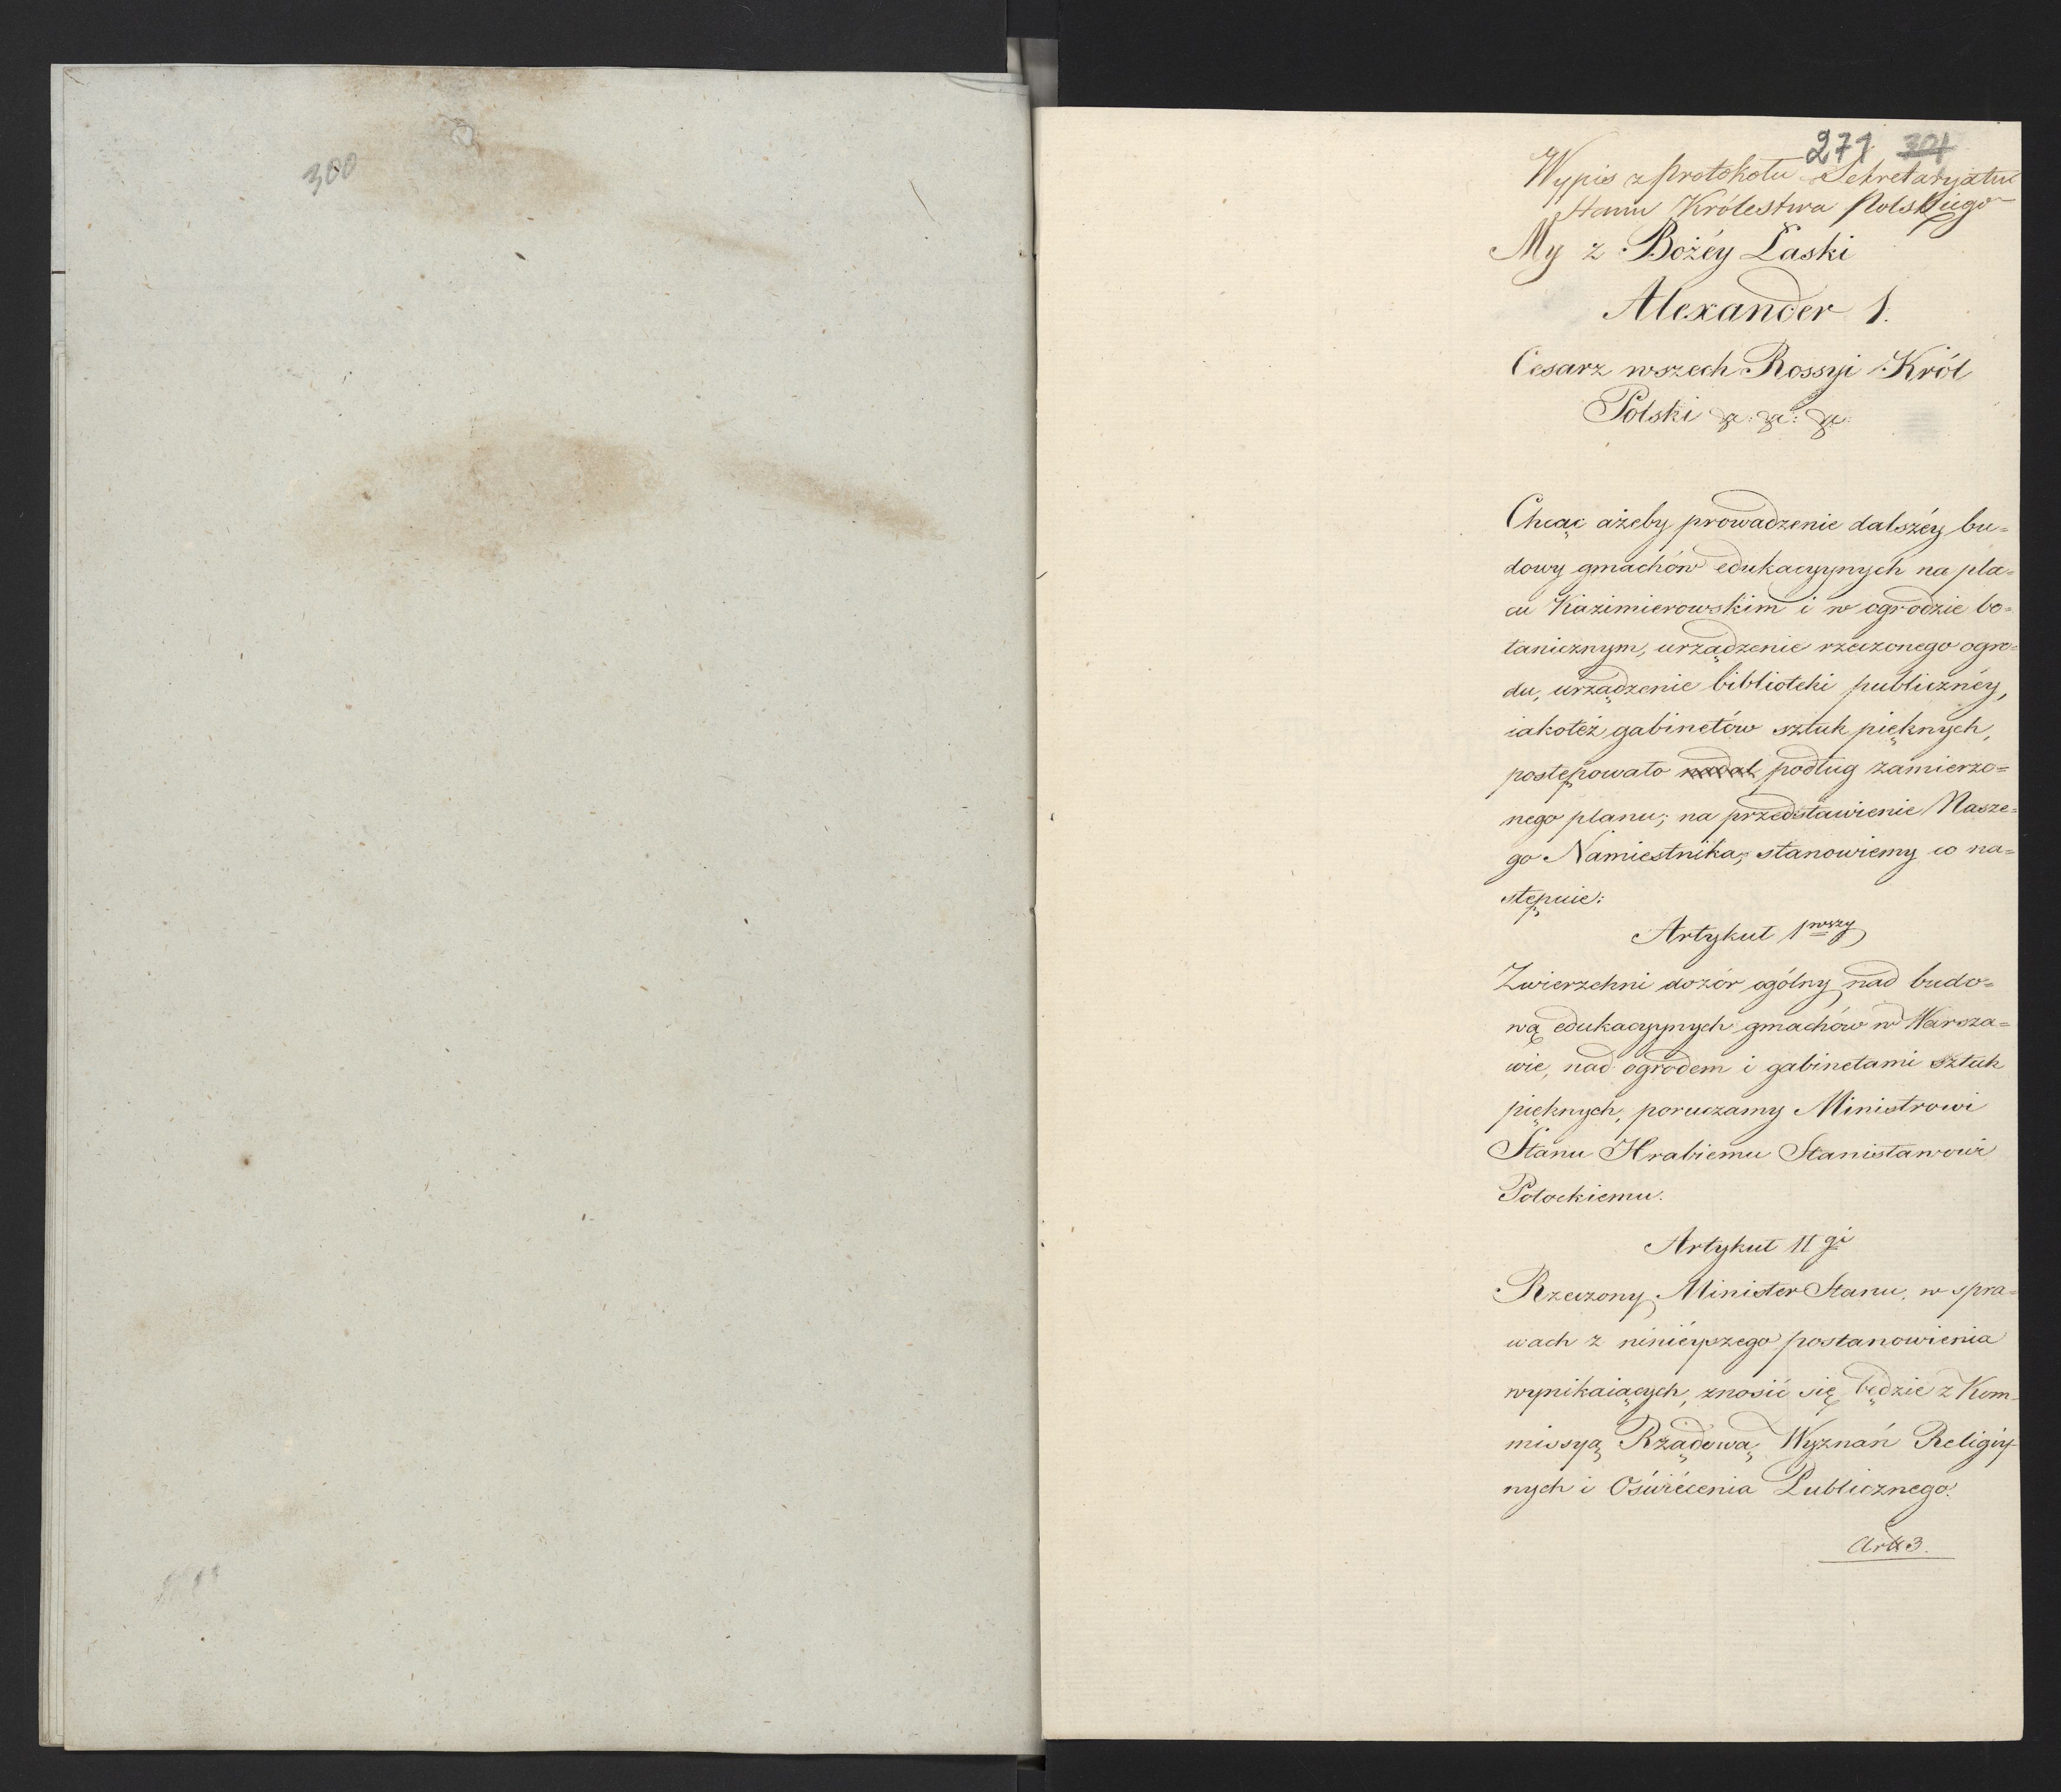 300
271 301
Wypis z protokołu Sekretaryatu
Stanu Królestwa Polskiego
My z Bożéy Łaski
Alexander I.
Cesarz wszech Rossyi Król
Polski &c: &c: &c:
Chcąc ażeby prowadzenie dalszéy bu=
dowy gmachów edukacyynych na pla=
cu Kazimierowskim i w ogrodzie bo=
tanicznym, urządzenie rzeczonego ogro=
du, urządzenie biblioteki publicznéy,
iakoteż gabinetów sztuk pięknych,
postępowało nadal podług zamierzo=
nego planu; na przedstawienie Nasze=
go Namiestnika, stanowiemy co na=
stępuie:
Artykuł 1wszy
Zwierzchni dozór ogólny nad budo=
wą edukacyynych gmachów w Warsza=
wie, nad ogrodem i gabinetami sztuk
pięknych, poruczamy Ministrowi
Stanu Hrabiemu Stanisławowi
Potockiemu.
Artykuł II gi
Rzeczony Minister Stanu, w spra=
wach z niniéyszego postanowienia
wynikaiących, znosić się będzie z Kom=
missyą Rządową Wyznań Religiy=
nych i Oświécenia Publicznego.
Art 3.